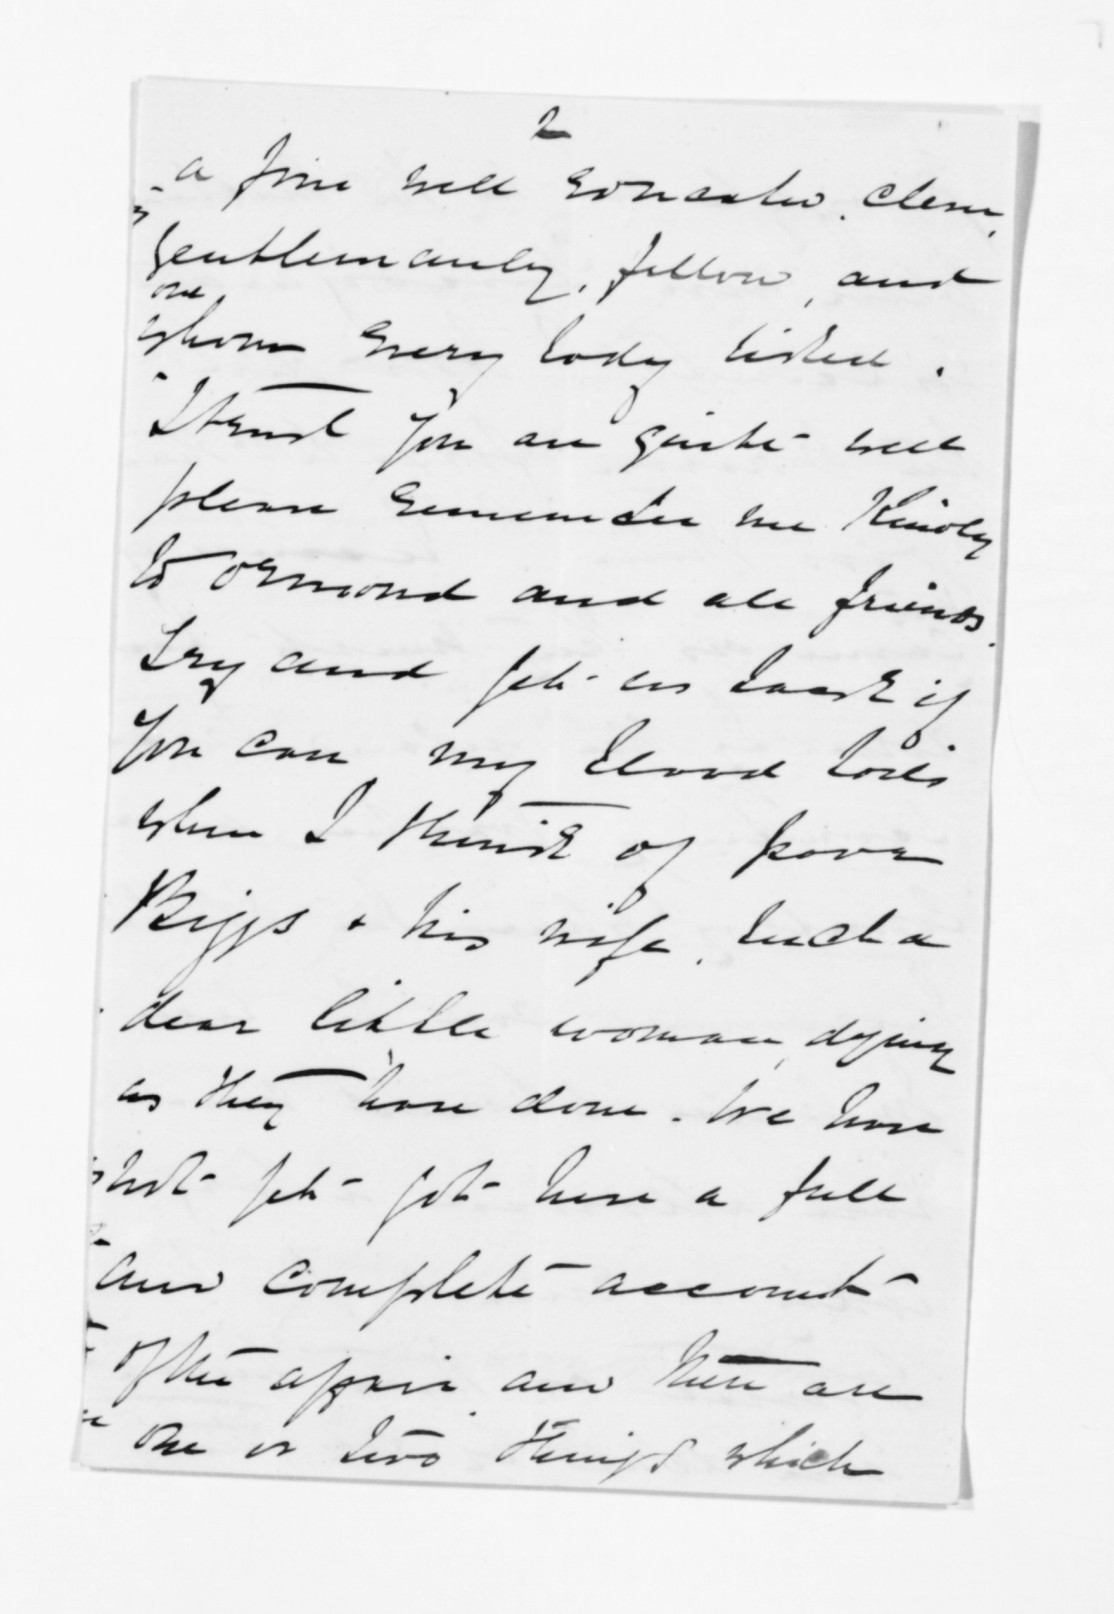 2
a fine well educated, clever,
gentlemanly, fellow, and
one
whom every body liked.
I trust you are quite well
please remember me Kindly
to Ormond and all friends.
Try and get us back if
you can my blood boils
when I think of poor
Biggs & his wife, such a
dear little woman, dying
as they have done. We have
not yet got here a full
and complete account
of the affair and there are
one or two things which